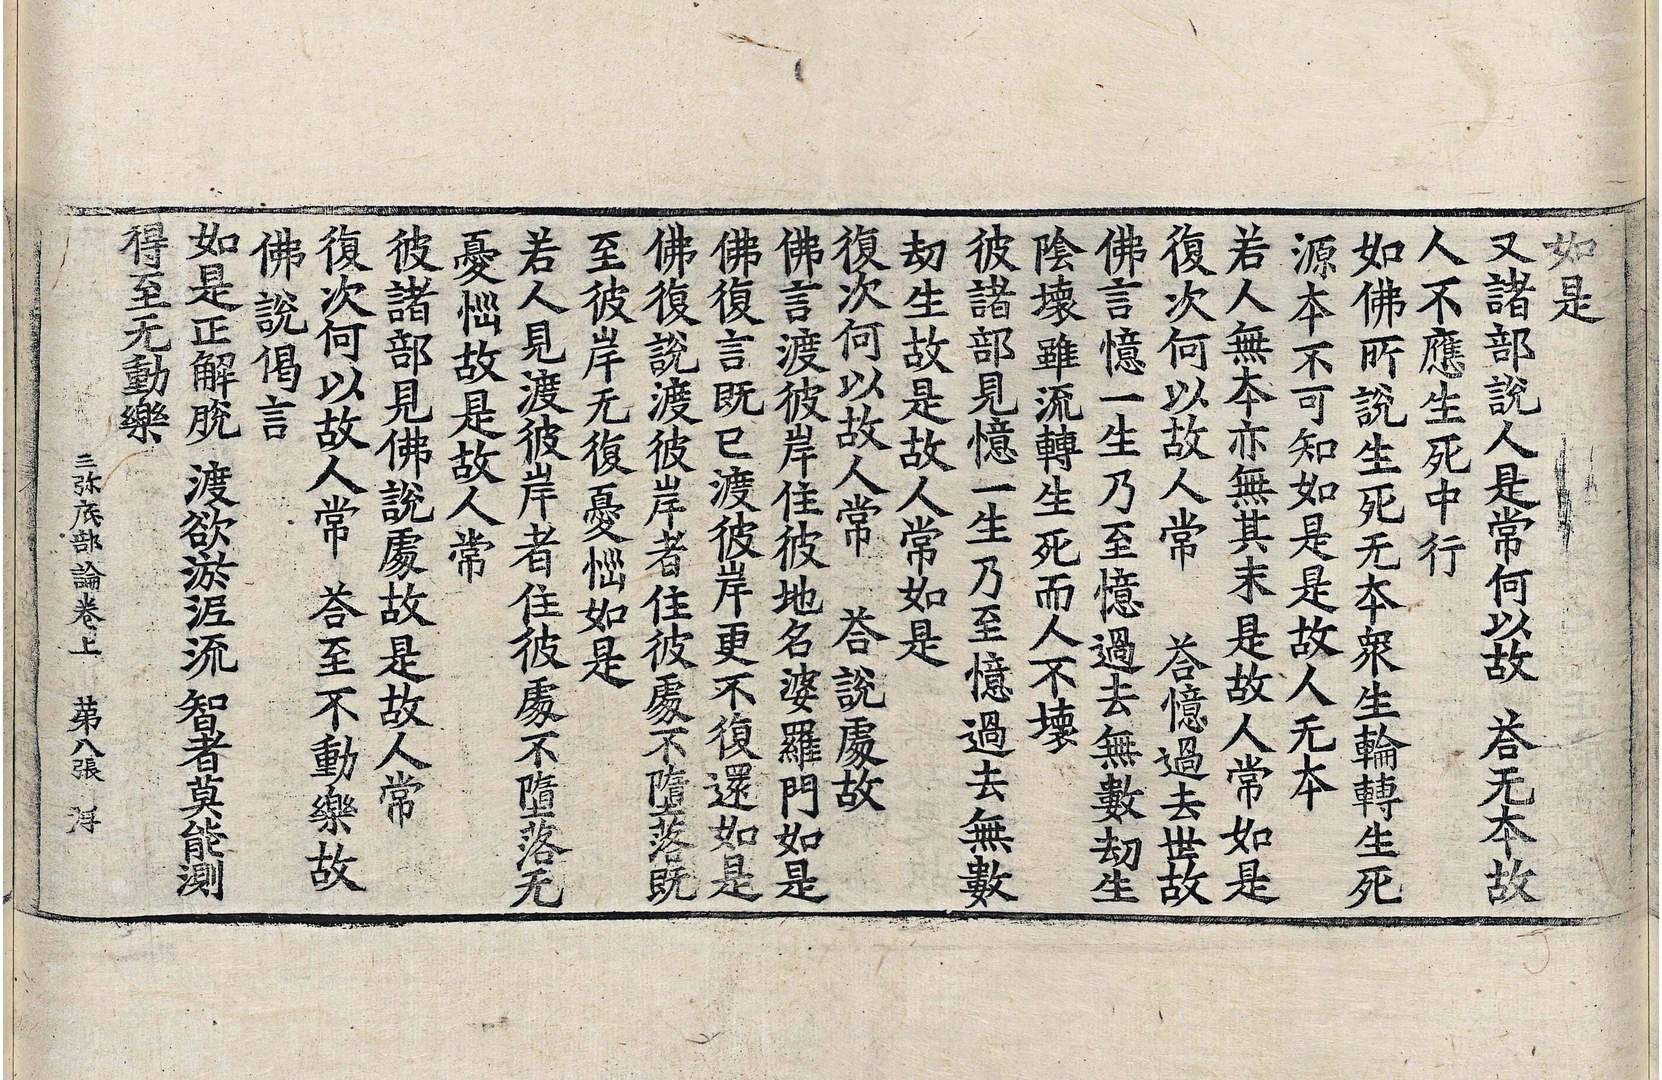 如是
又諸部說人是常何以故　荅无本故
人不應生死中行
如佛所說生死无本衆生輪轉生死
源本不可知如是是故人无本
若人無本亦無其末是故人常如是
復次何以故人常　荅憶過去世故
佛言憶一生乃至憶過去無數劫生
陰壞雖流轉生死而人不壞
彼諸部見憶一生乃至憶過去無數
劫生故是故人常如是
復次何以故人常　荅說處故
佛言渡彼岸住彼地名婆羅門如是
佛復言既已渡彼岸更不復還如是
佛復說渡彼岸者住彼處不墮落既
至彼岸无復憂惱如是
若人見渡彼岸者住彼處不墮落无
憂惱故是故人常
彼諸部見佛說處故是故人常
復次何以故人常　荅至不動樂故
佛說偈言
如是正解脫　渡欲淤泥流　智者莫能測
得至无動樂
三弥底部論卷上　第八張　浮